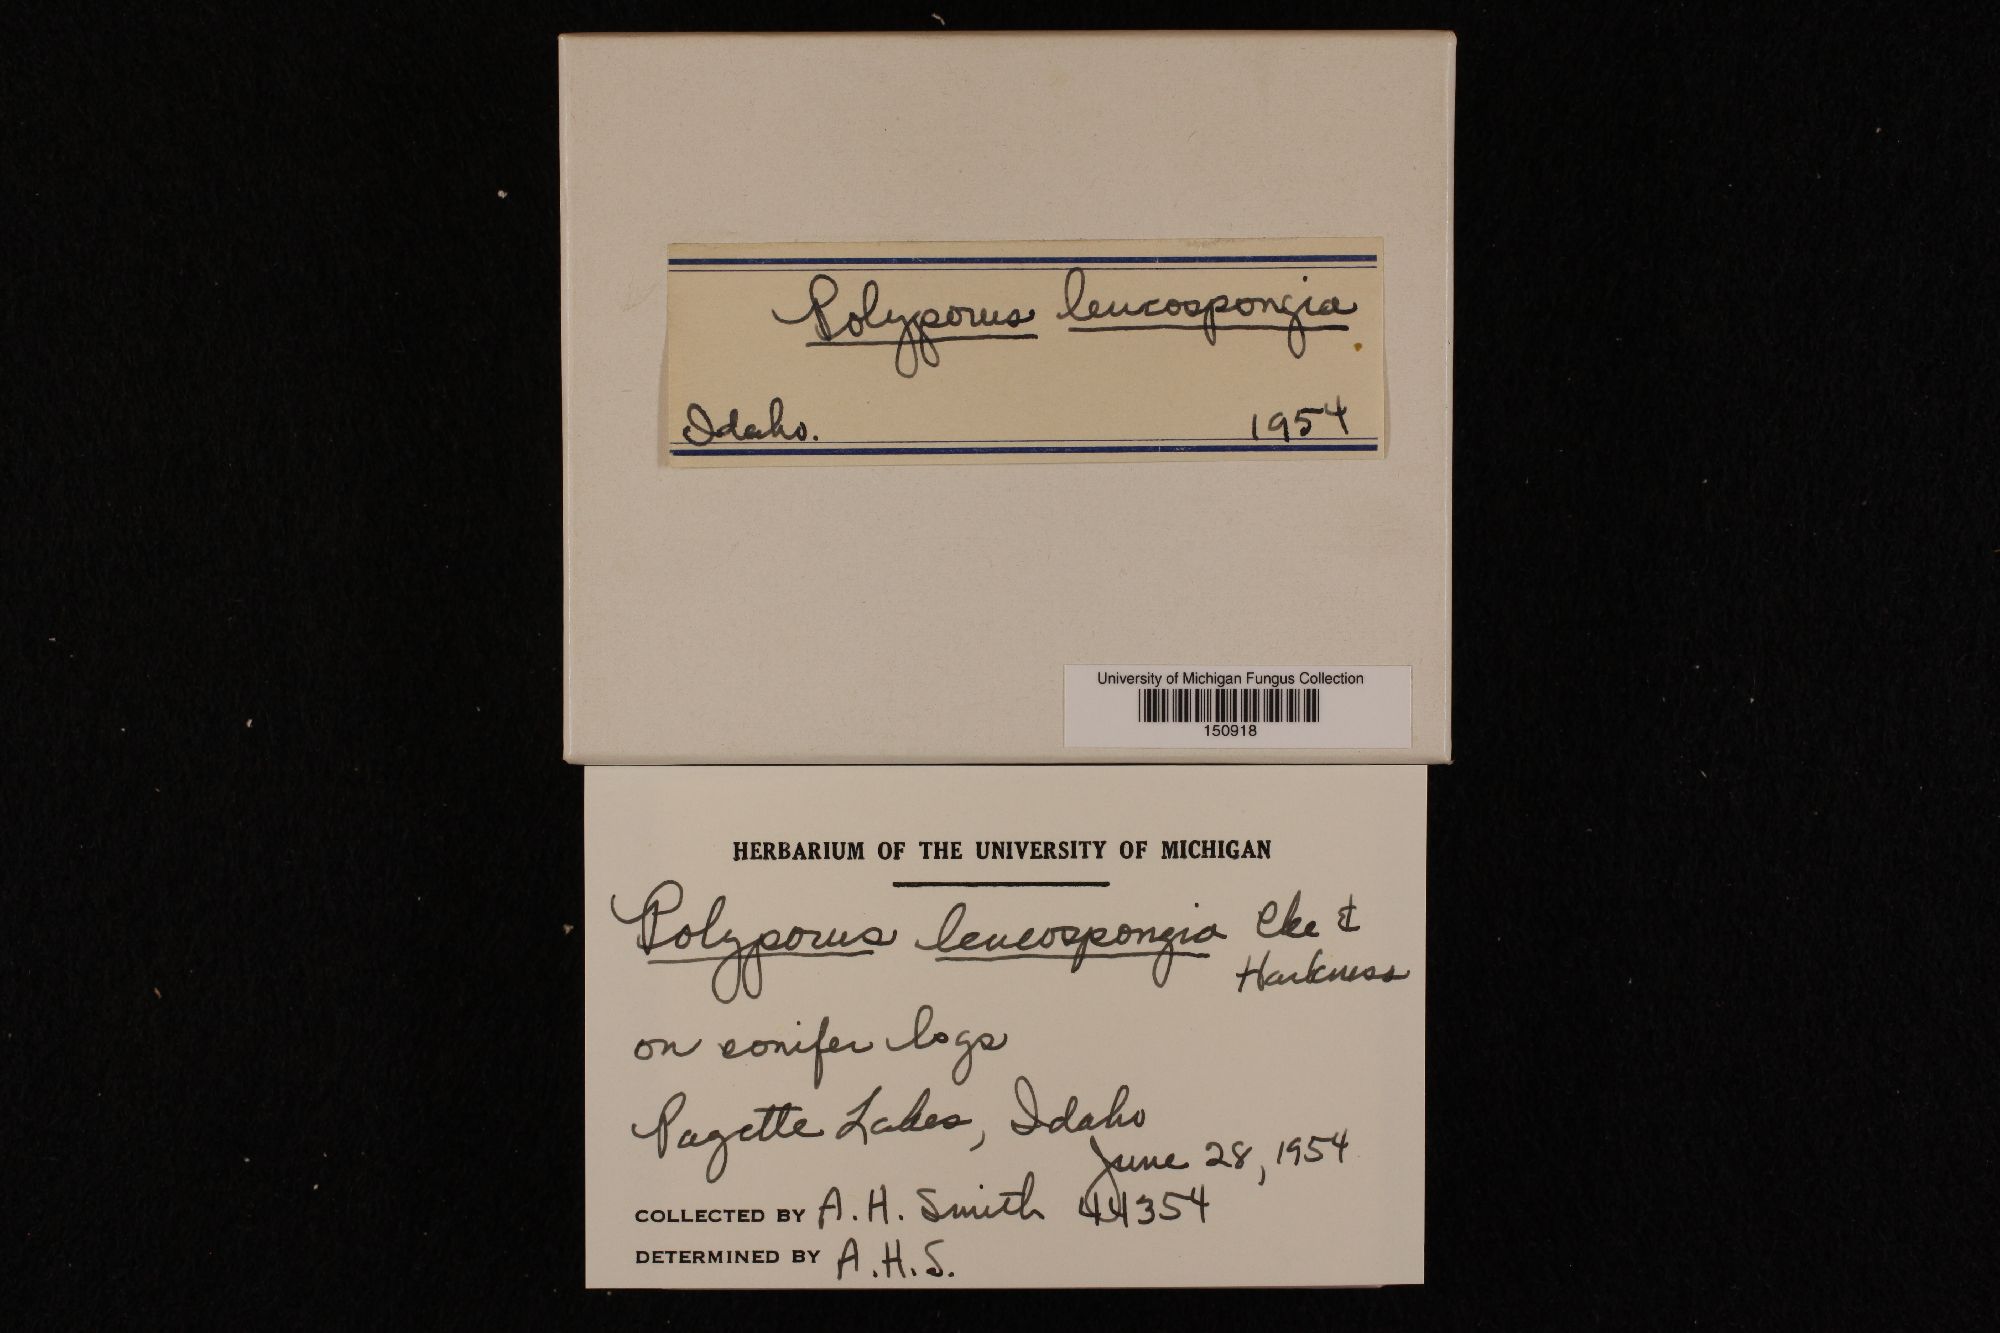 Polyporus leucospongia
Idaho. 1954
University of Michigan Fungus Collection
150918
HERBARIUM OF THE UNIVERSITY OF MICHIGAN
Polyporus leucospongia Cke &
Harkness
on conifer logs
Payette Lakes, Idaho
June 28, 1954
COLLECTED BY A. H. Smith 44354
DETERMINED BY A.H.S.